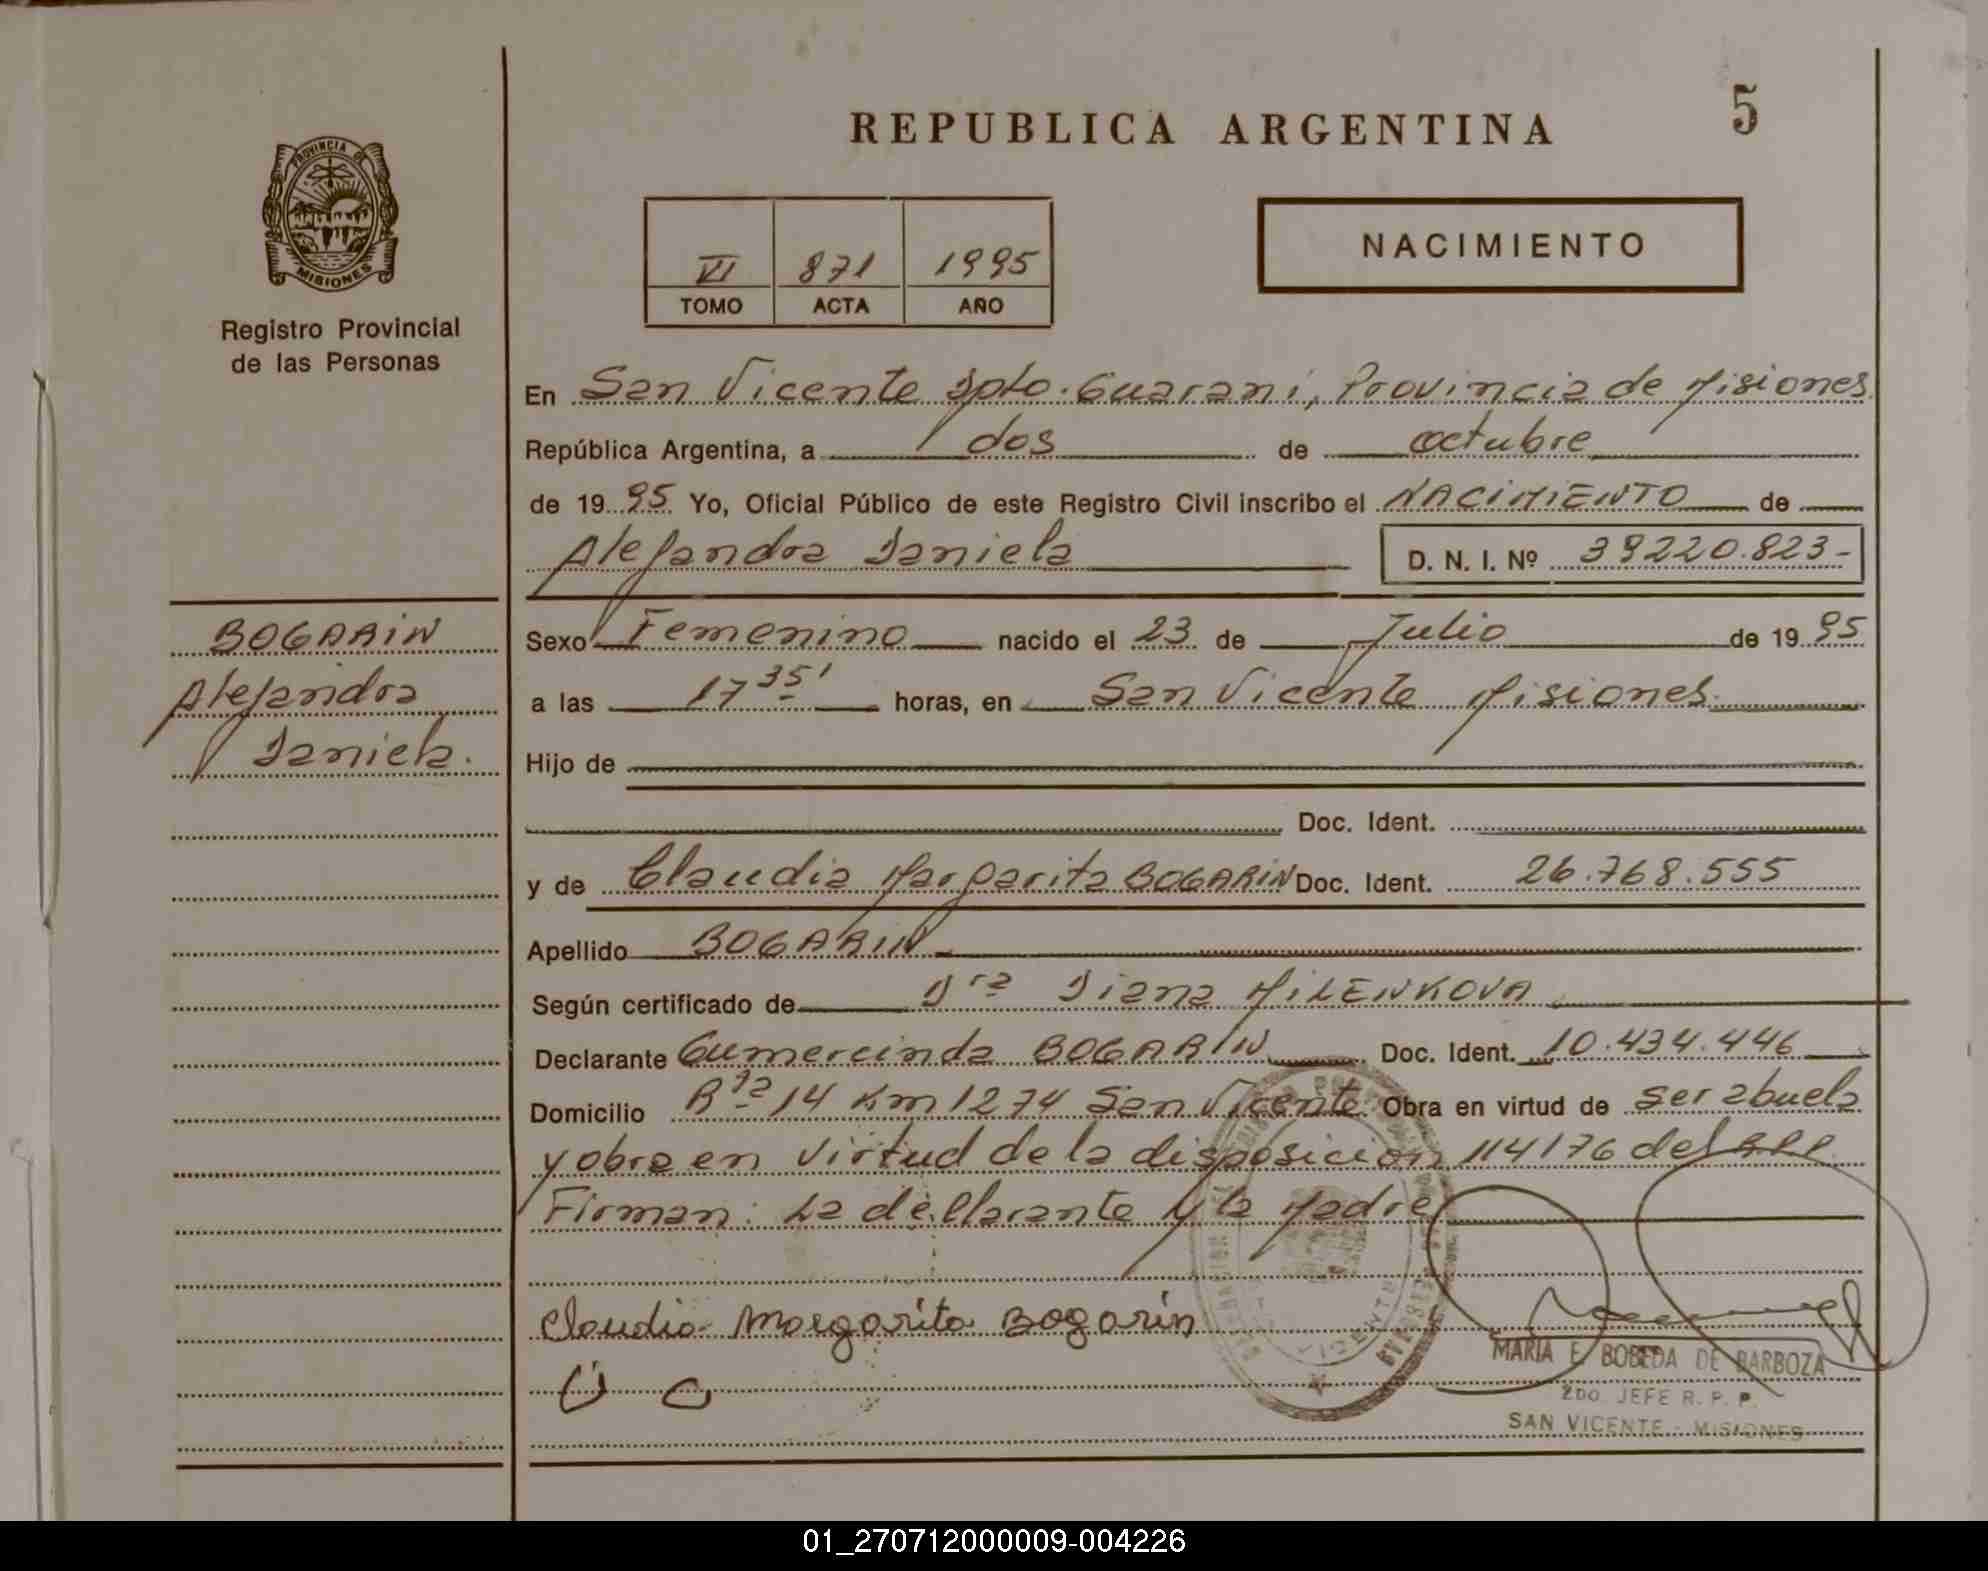 REPUBLICA ARGENTINA
5
PROVINCIA DE
MISIONES
Registro Provincial
de las Personas
VI 871 1995
TOMO ACTA AÑO
NACIMIENTO
En San Vicente Dpto. Guaraní, Provincia de Misiones
República Argentina, a dos de octubre
de 1995 Yo, Oficial Público de este Registro Civil inscribo el NACIMIENTO de
Alejandra Daniela D. N. I. Nº 39220.823-
BOGARIN
Alejandra
Daniela.
Sexo Femenino nacido el 23 de Julio de 1995
a las 17 35' horas, en San Vicente Misiones
Hijo de
Doc. Ident.
y de Claudia Margarita BOGARIN Doc. Ident. 26.768.555
Apellido BOGARIN
Según certificado de Dra Diana MILENKOVA
Declarante Gumercinda BOGARIN Doc. Ident. 10.434.446
Domicilio Rta 14 Km 1274 San Vicente Obra en virtud de ser abuela
y obra en virtud de la disposición 114176 del RPP
Firman: La declarante y la Madre
Claudia Margarita Bogarin
MARIA E. BOBEDA DE BARBOZA
2DO JEFE R. P. P.
SAN VICENTE - MISIONES
01_270712000009-004226